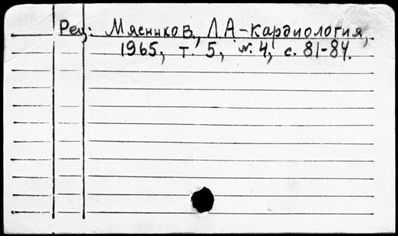 Рец: Мясников, Л.А-Кардиология,
1965, т. 5, №4, с. 81-84.